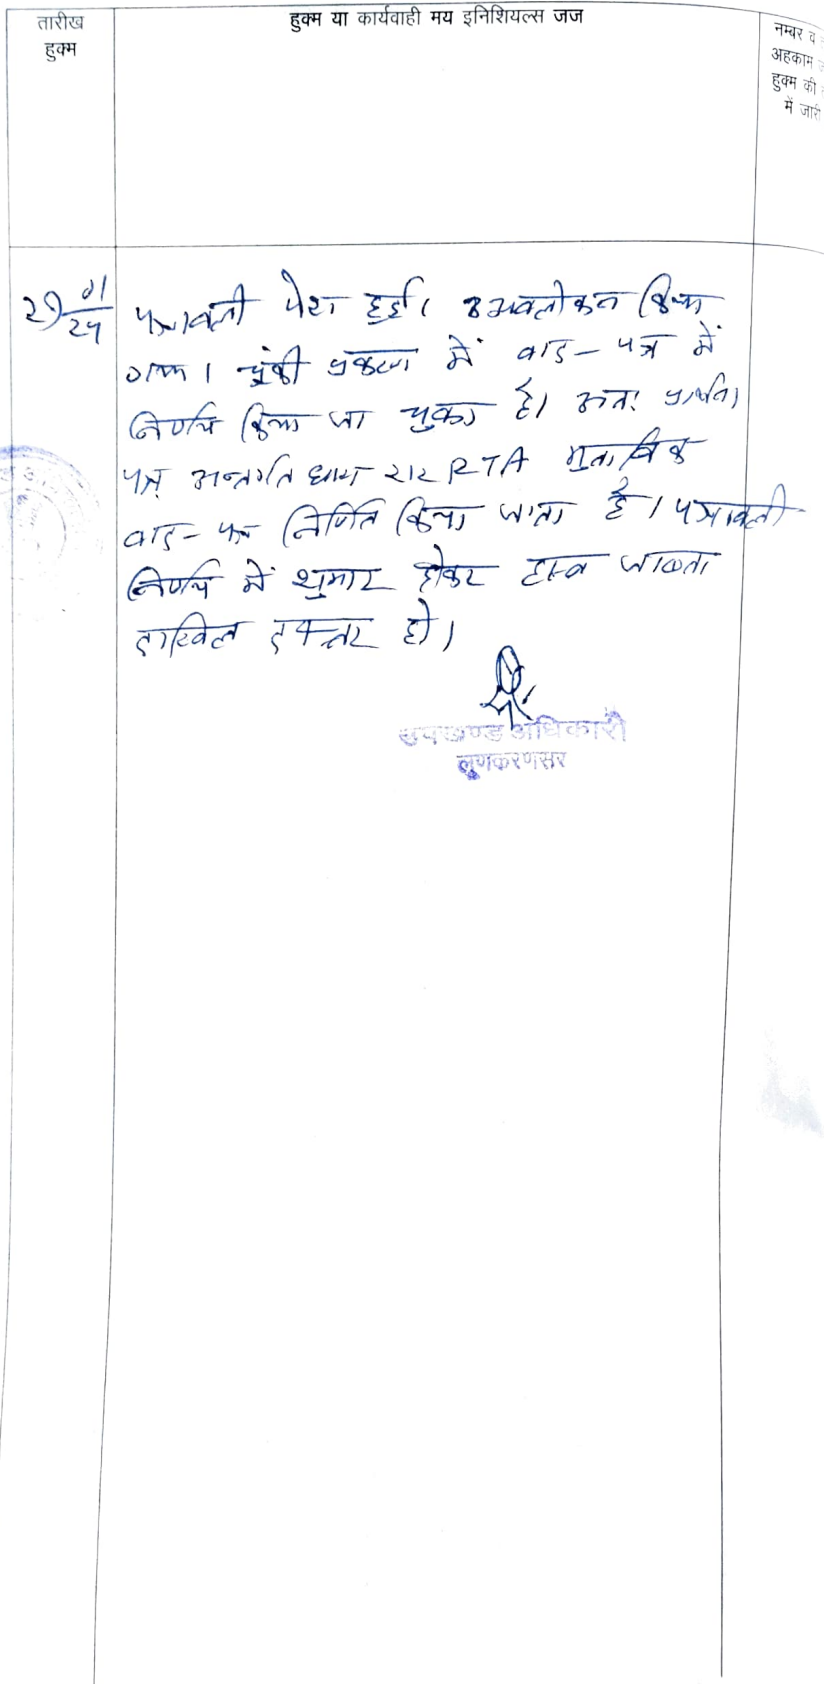 तारीख
हुक्म
हुक्म या कार्यवाही मय इनिशियल्स जज
नम्बर व
अहकाम
हुक्म की
में जारी
29/01/24
पत्रावली पेश हुई। अवलोकन किया
गया। चूंकी प्रकरण में वाद-पत्र में
निर्णय किया जा चुका है। अतः प्रार्थना
पत्र अन्तर्गत धारा 212 RTA मुताबिक
वाद-पत्र निर्णित किया जाता है। पत्रावली
निर्णय में शुमार होकर हस्ब जाब्ता
दाखिल दफ्तर हो।
उपखण्ड अधिकारी
लूणकरणसर